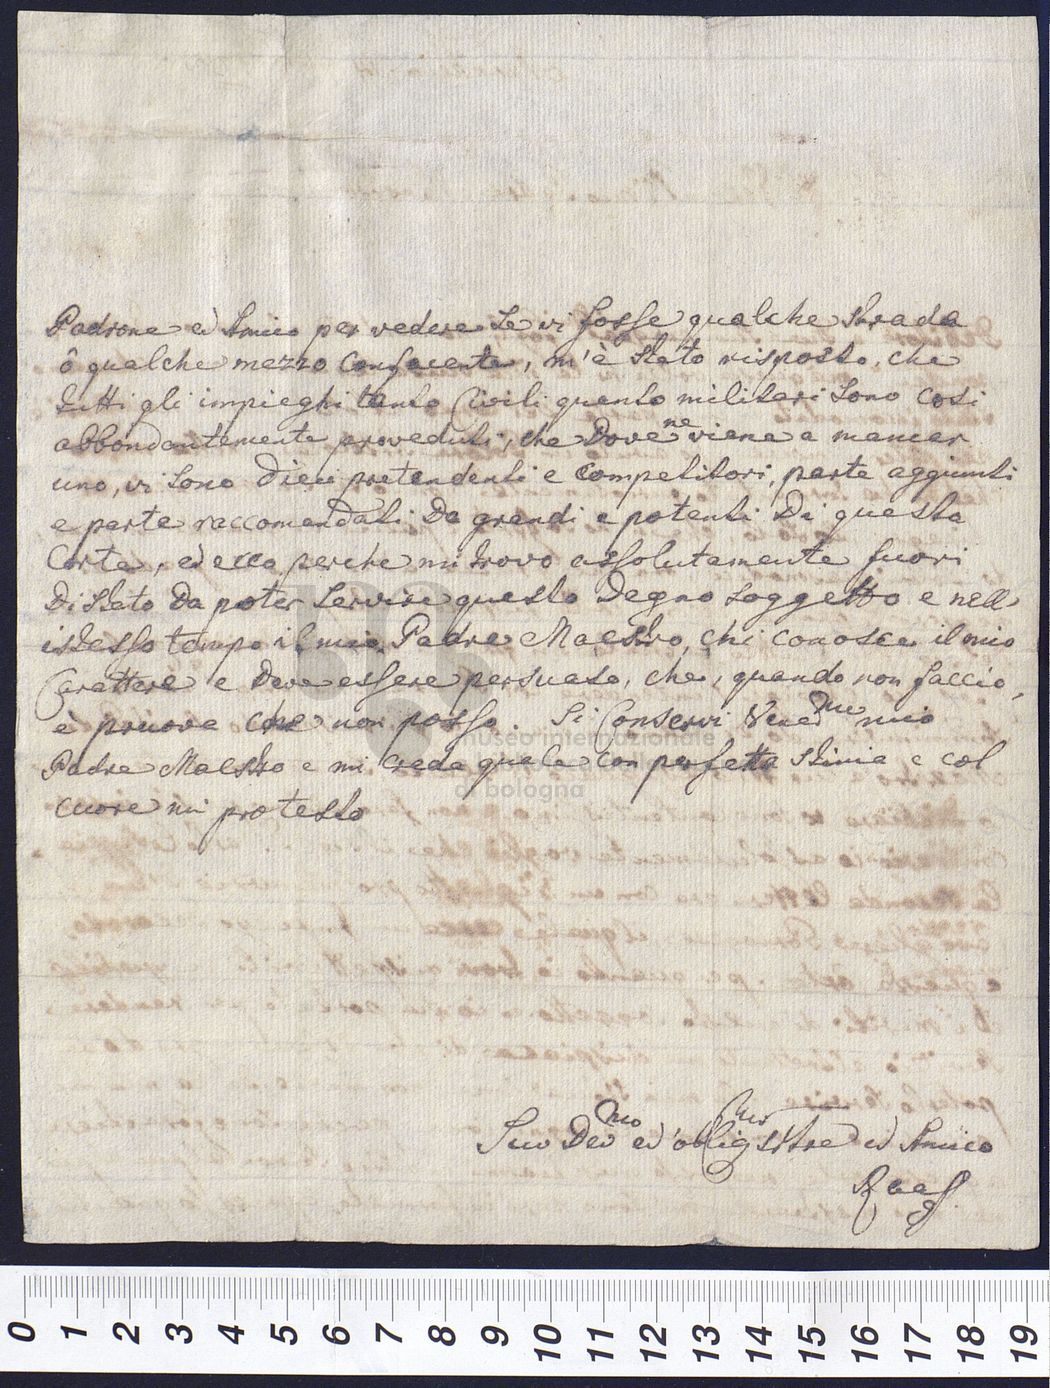 Padrone ed Amico per vedere se vi fosse qualche strada
ô qualche mezzo confacente, m'è stato risposto, che
tutti gli impieghi tanto Civili quanto militari sono cosi
abbondantemente proveduti, che dove ne viene a mancar
uno, vi sono dieci pretendenti e competitori, parte aggiunti
e parte raccomandati da grandi e potenti di questa
Corte, ed ecco perche mi trovo assolutamente fuori
di stato da poter servire questo degno soggetto e nell
istesso tempo il mio Padre Maestro, chi conosce il mio
Carattere e deve essere persuaso, che, quando non faccio,
è pruova che non posso. Si Conservi mio
Padre Maestro e mi creda quale con perfetta stima e col
cuore mi protesto
museo internazionale
di bologna
Suo Devmo ed obligmo Sitre ed Amico